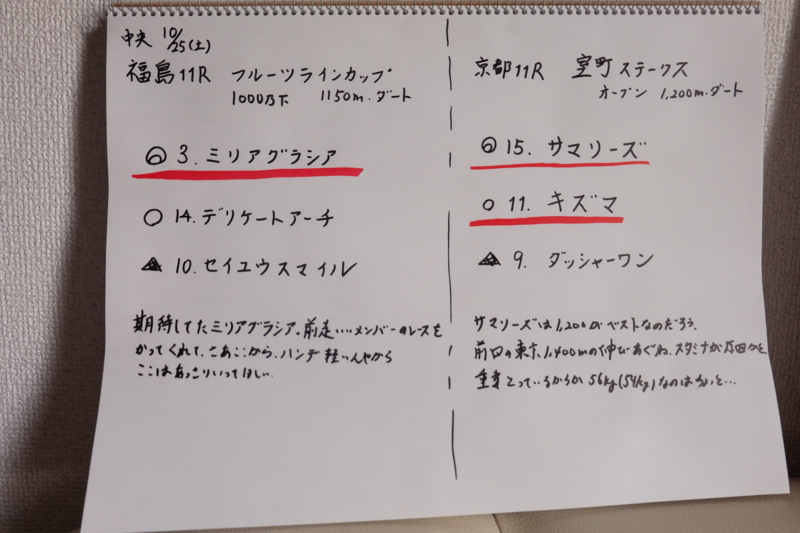 中央 10/25(土)
福島11R フルーツラインカップ
1000万下 1150m.ダート
◎ 3. ミリアグラシア
○ 14. デリケートアーチ
▲ 10. セイユウスマイル
期待してたミリアグラシア。前走いいメンバーのレースを
かってくれて、さあここから。ハンデ軽いんやから
ここはあっさりいってほしい。
京都11R 室町ステークス
オープン 1,200m.ダート
◎ 15. サマリーズ
○ 11. キズマ
▲ 9. ダッシャーワン
サマリーズは1,200がベストなのだろう。
前回の東京1,400mで伸びあぐね。スタミナが原因かと
とっているからか 56kg(54kg)なのはちょっと…